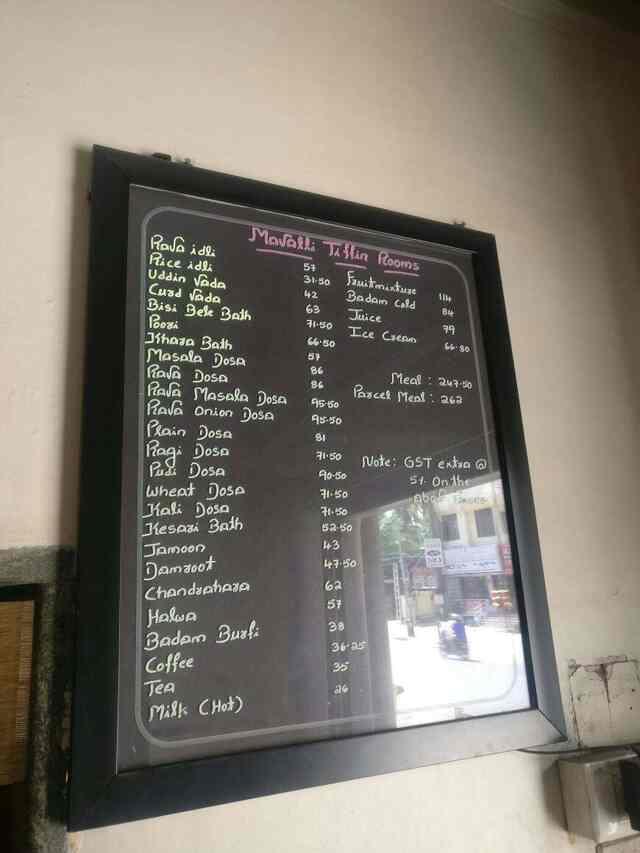 Mavalli Tiffin Rooms
Rava idli 57
Rice idli 31.50
Uddin Vada 42
Curd Vada 63
Bisi Bele Bath 71.50
Poori 66.50
Khara Bath 57
Masala Dosa 86
Rava Dosa 86
Rava Masala Dosa 95.50
Rava Onion Dosa 95.50
Plain Dosa 81
Ragi Dosa 71.50
Pudi Dosa 90.50
Wheat Dosa 71.50
Kali Dosa 71.50
Kesari Bath 52.50
Jamoon 43
Damroot 47.50
Chandrahara 62
Halwa 57
Badam Burfi 38
Coffee 36.25
Tea 35
Milk (Hot) 26
Fruitmixture 114
Badam Cold 84
Juice 79
Ice Cream 66.80
Meal : 247.50
Parcel Meal : 262
Note: GST extra @
5% On the
above